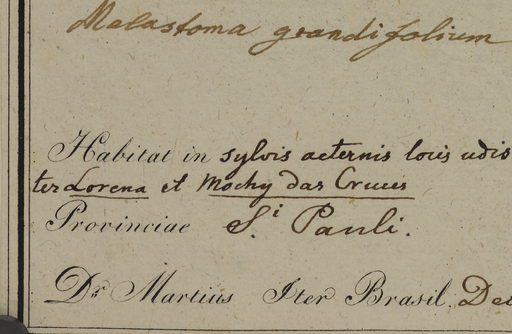 Melastoma grandifolium
Habitat in sylvis aeternis locis udis
ter Lorena et Mochy das Cruces
Provinciae S.i Pauli.
Dr. Martius Iter Brasil. Dec